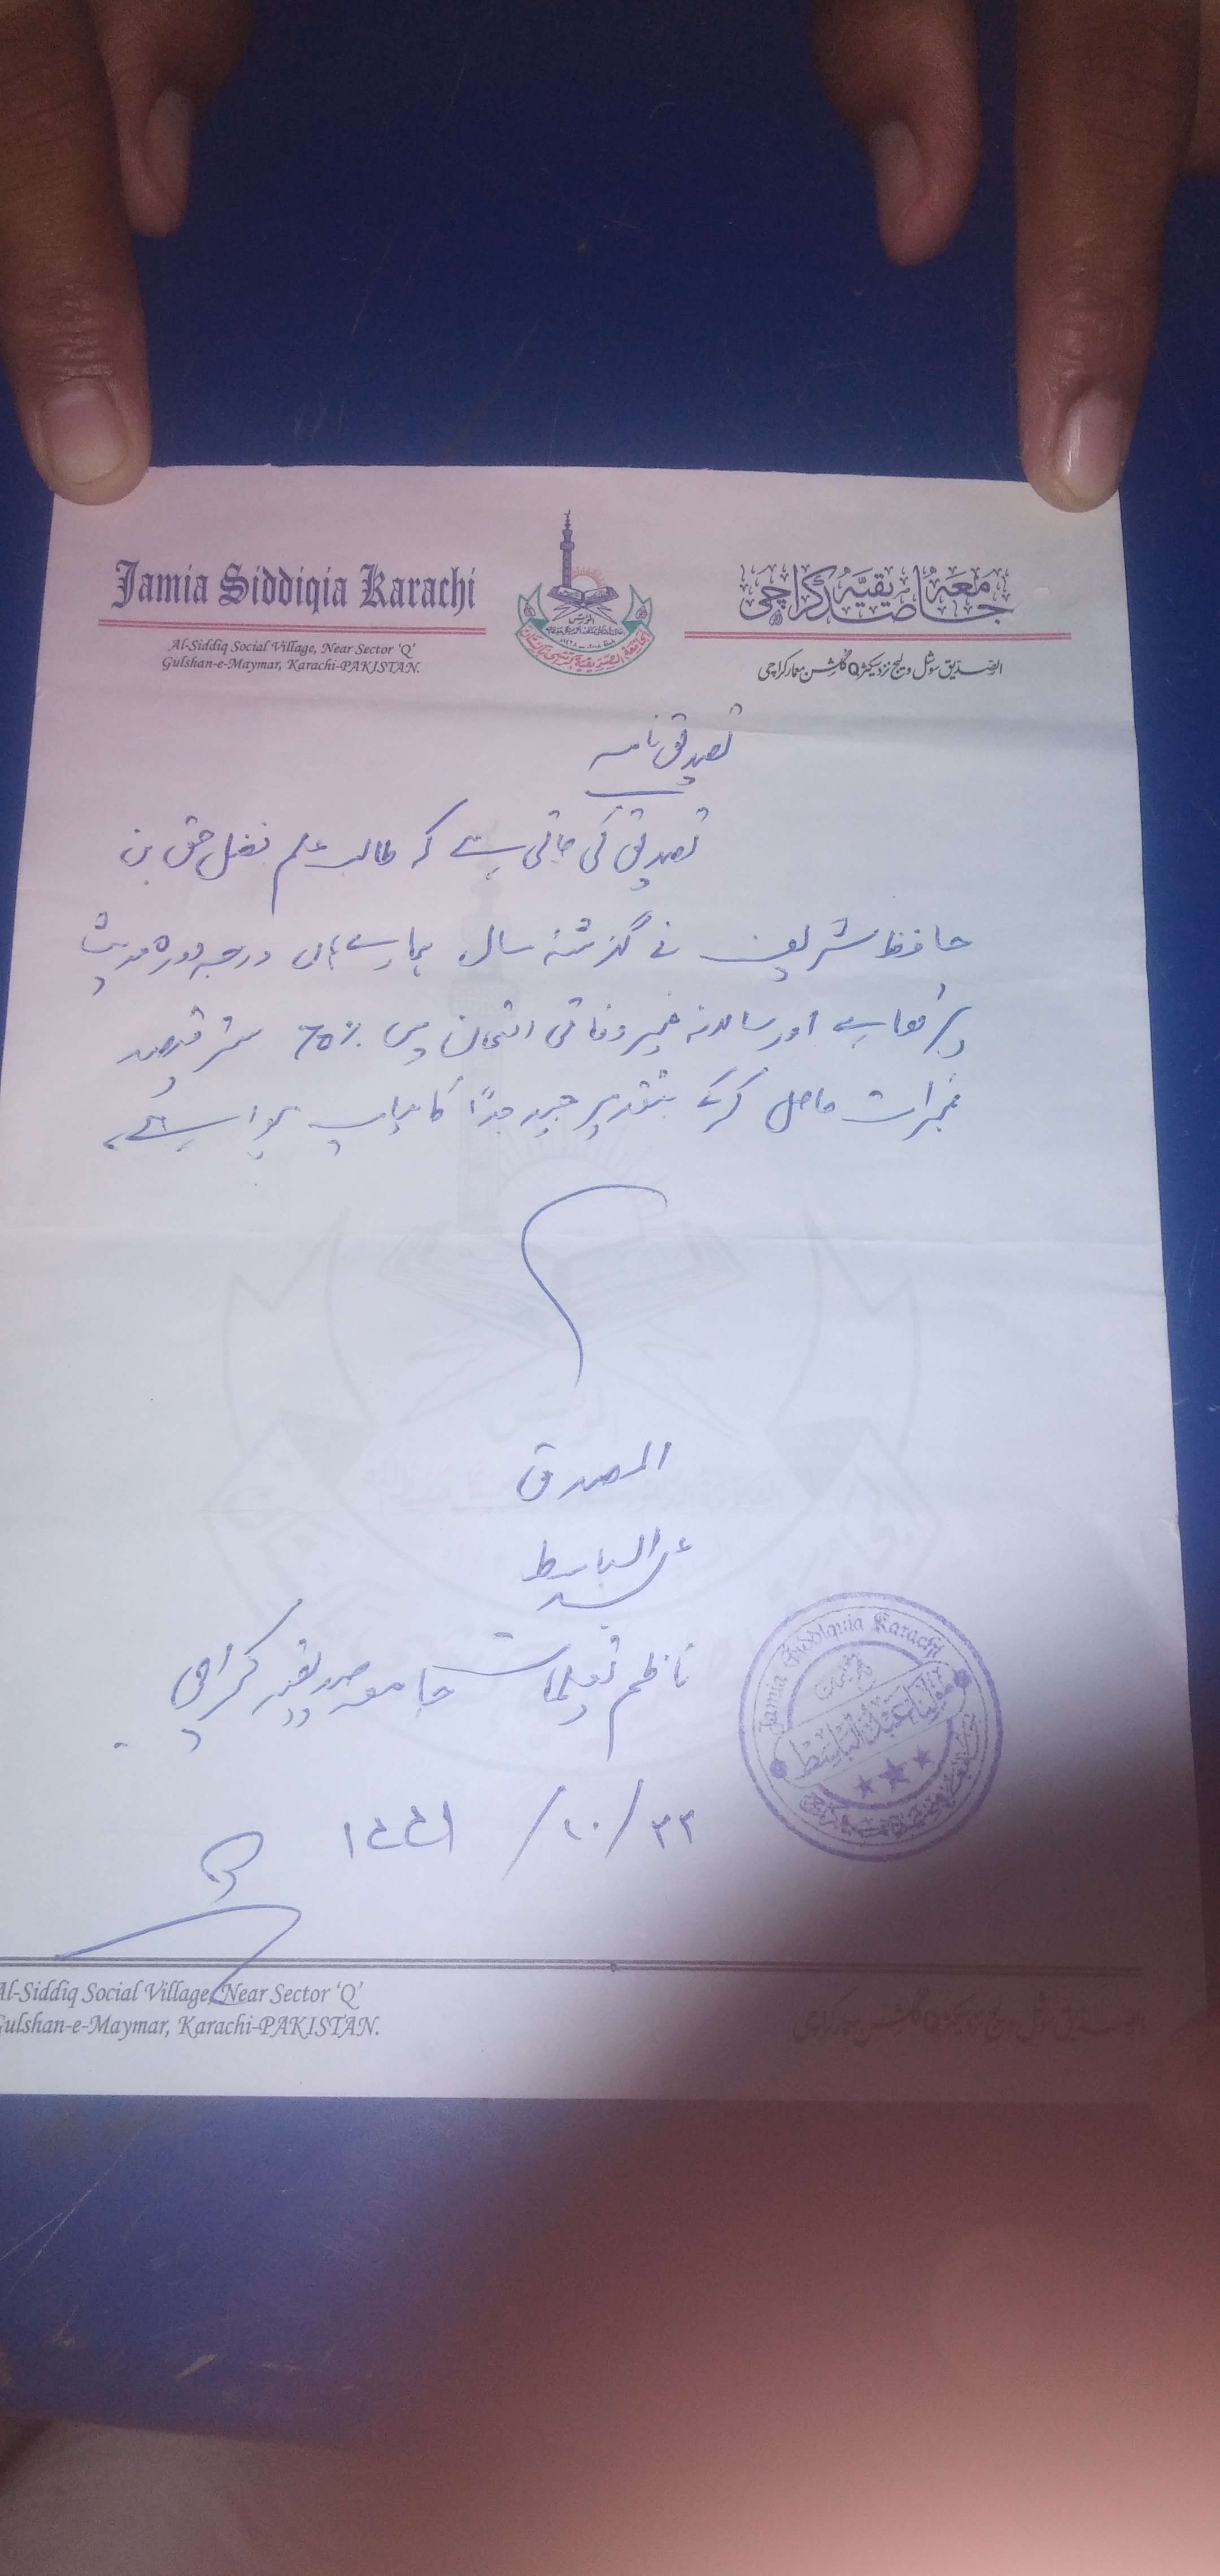 Jamia Siddiqia Karachi
جامعہ صدیقیہ کراچی
Al-Siddiq Social Village, Near Sector 'Q'
Gulshan-e-Maymar, Karachi-PAKISTAN.
الصدیق سوشل ولیج نزد سیکٹر Q گلشن معمار کراچی
تصدیق نامہ
تصدیق کی جاتی ہے کہ طالب علم فضل حق بن
حافظ شریف نے گزشتہ سال ہمارے ہاں درجہ دورہ حدیث
پڑھا ہے اور سالانہ غیر وفاقی امتحان میں 70٪ ستر فیصد
نمبرات حاصل کرکے بتقدیر جید جدًا کامیاب ہوا ہے۔
المصدق
عبدالباسط
ناظم تعلیمات جامعہ صدیقیہ کراچی
Jamia Siddiqia Karachi
مولانا عبدالباسط
١٤٤١ / ١٠ / ٢٢
Al-Siddiq Social Village, Near Sector 'Q'
Gulshan-e-Maymar, Karachi-PAKISTAN.
الصدیق سوشل ولیج نزد سیکٹر Q گلشن معمار کراچی